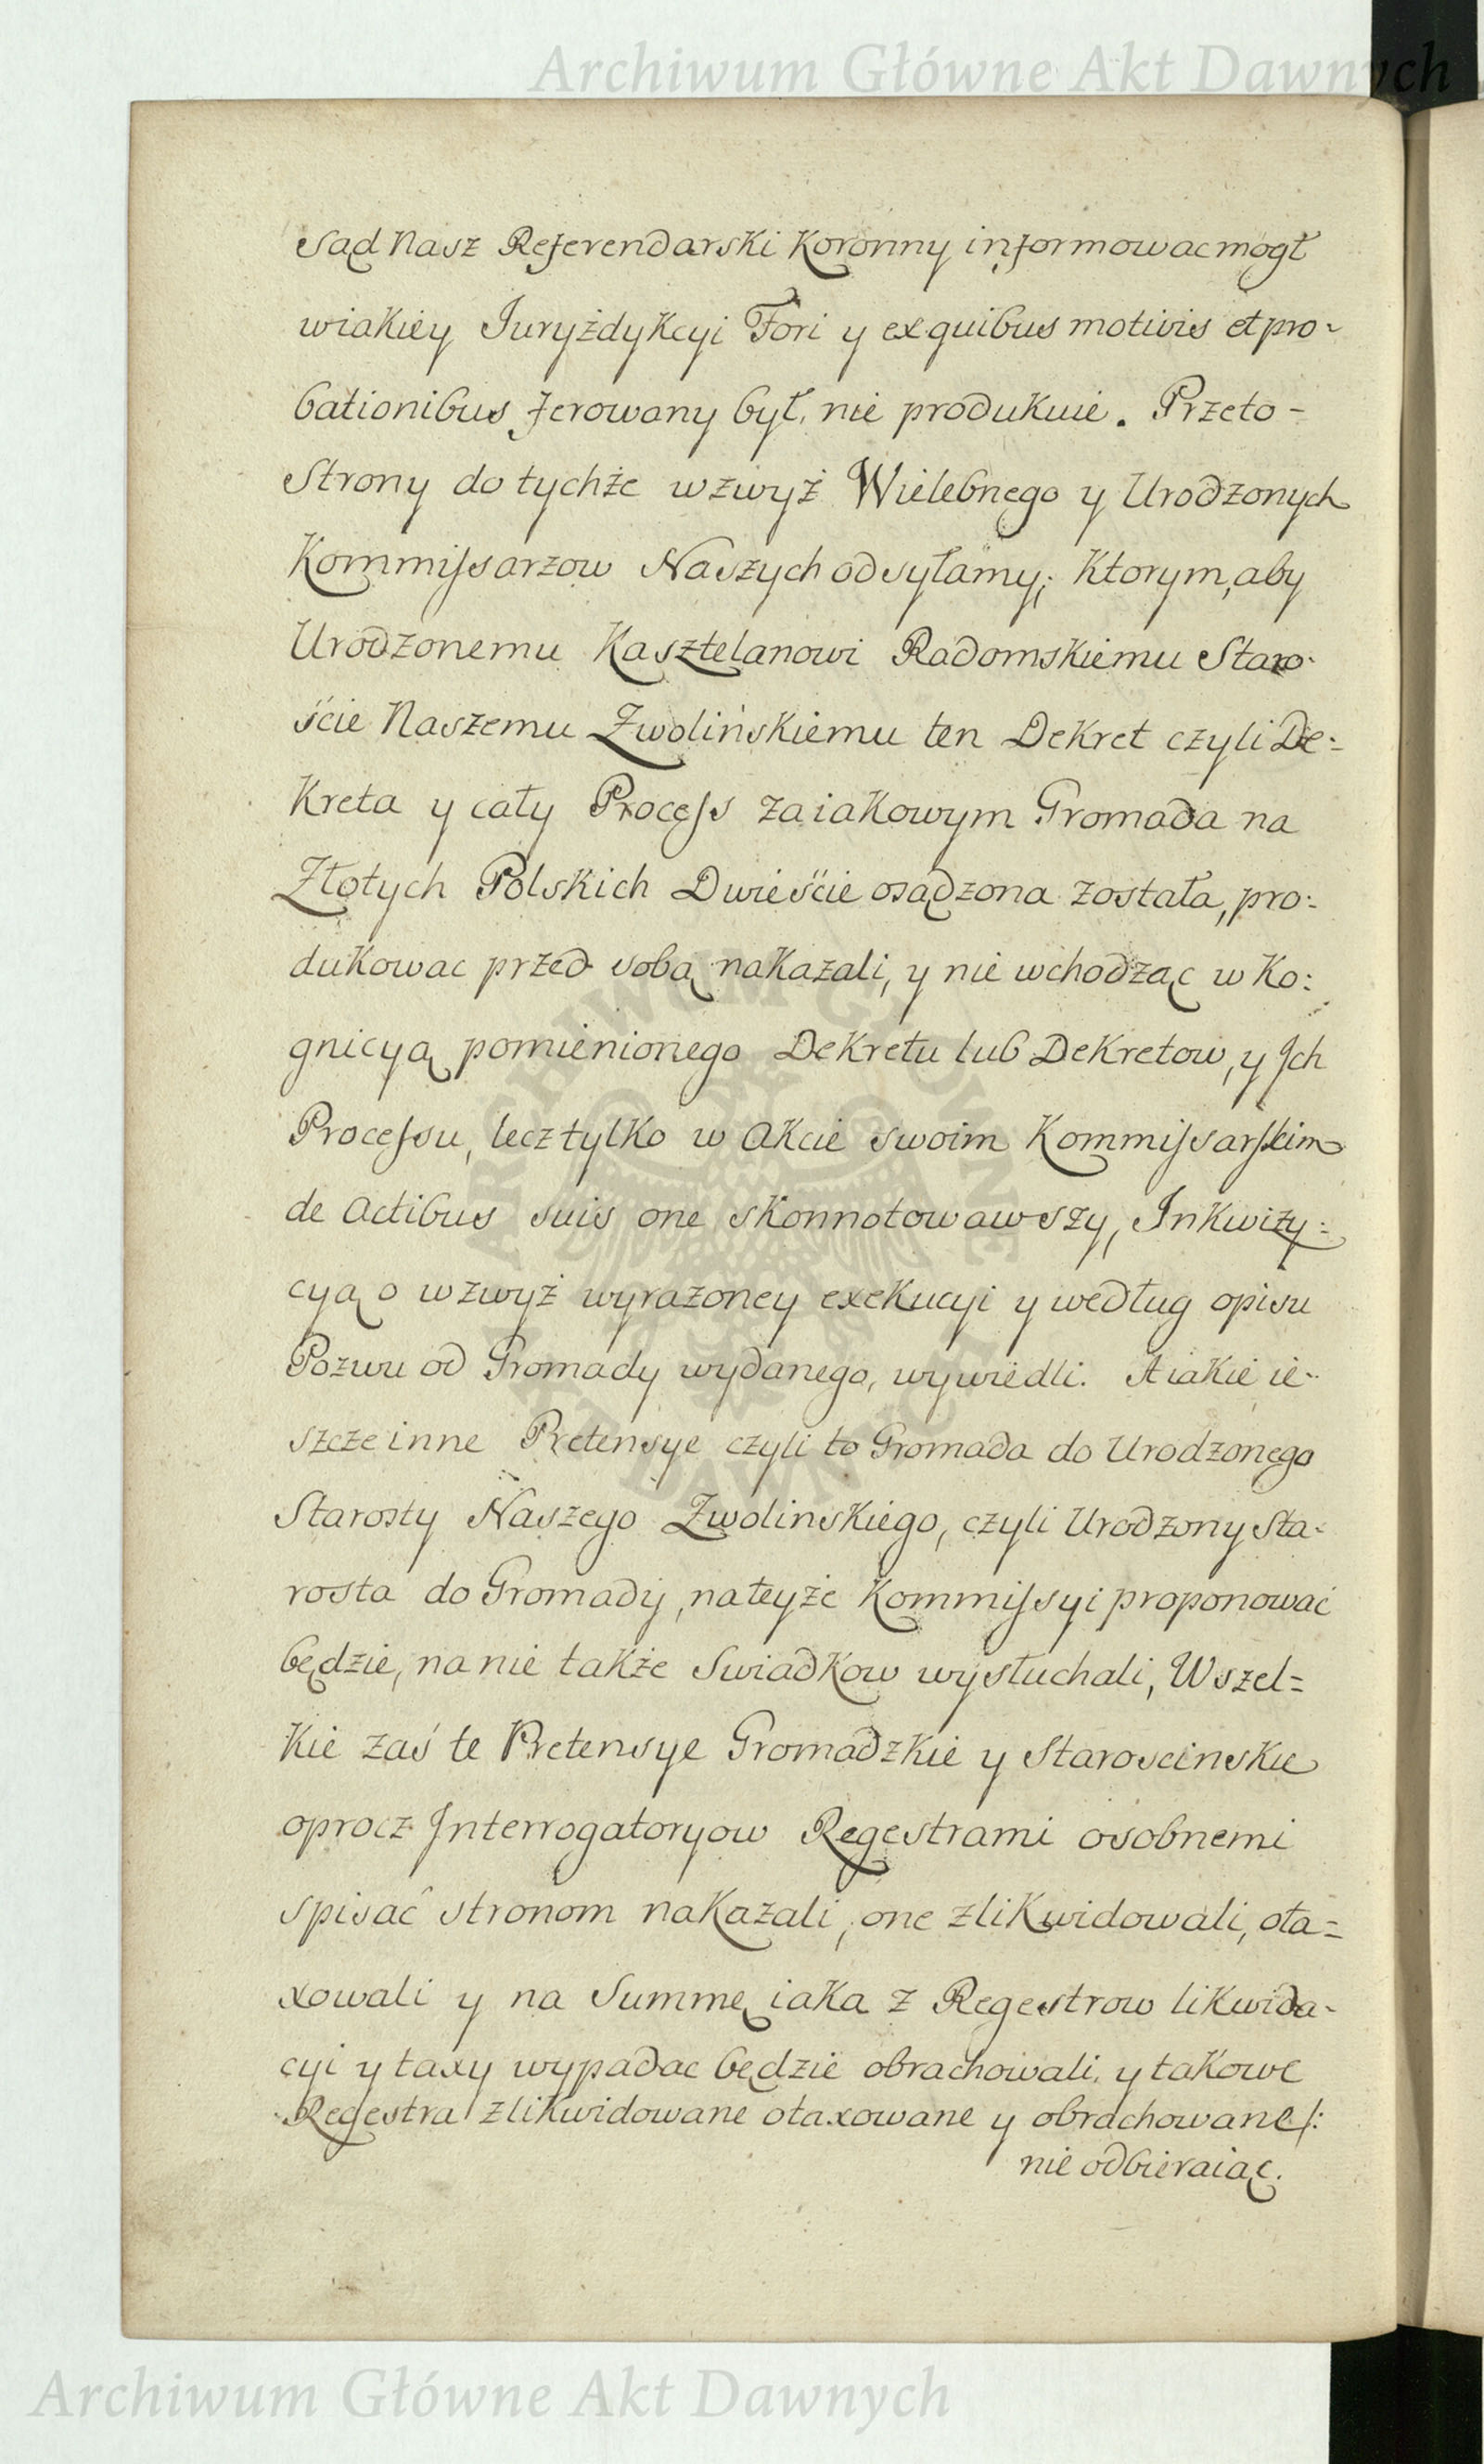 Archiwum Główne Akt Dawnych
Sąd Nasz Referendarski Koronny informowac mogł
wiakiey Juryżdykcyi Fori y ex quibus motivis et pro-
bationibus ferowany był, nie produkuie. Przeto-
Strony do tychże wzwyż Wielebnego y Urodzonych
Kommissarzow Naszych odsyłamy; Ktorym, aby
Urodzonemu Kasztelanowi Radomskiemu Staro-
ście Naszemu Zwolińskiemu ten Dekret czyli De:
kreta y cały Process za iakowym Gromada na
Złotych Polskich Dwieście osądzona została, pro:
dukowac przed sobą nakazali, y nie wchodząc w Ko:
gnicyą pomienionego Dekretu lub Dekretow, y Jch
Processu, lecz tylko w Akcie swoim Kommissarskim
de Actibus suis one skonnotowawszy, Inkwizy:
cyą o wzwyż wyrażoney exekucyi y według opisu
Pozwu od Gromady wydanego, wywiedli. A iakie ie-
szcze inne Pretensye czyli to Gromada do Urodzonego
Starosty Naszego Zwolinskiego, czyli Urodzony Sta-
rosta do Gromady, na teyże Kommissyi proponować
będzie, na nie także Swiadkow wysłuchali, Wszel=
kie zaś te Pretensye Gromadzkie y Staroscinskie
oprocz Jnterrogatoryow Regestrami osobnemi
spisać stronom nakazali, one zlikwidowali, ota=
xowali y na Summę iaka z Regestrow likwida-
cyi y taxy wypadac będzie obrachowali, y takowe
Regestra zlikwidowane otaxowane y obrachowane /:
nie odbieraiąc.
ARCHIWUM GŁÓWNE
AKT DAWNYCH
Archiwum Główne Akt Dawnych